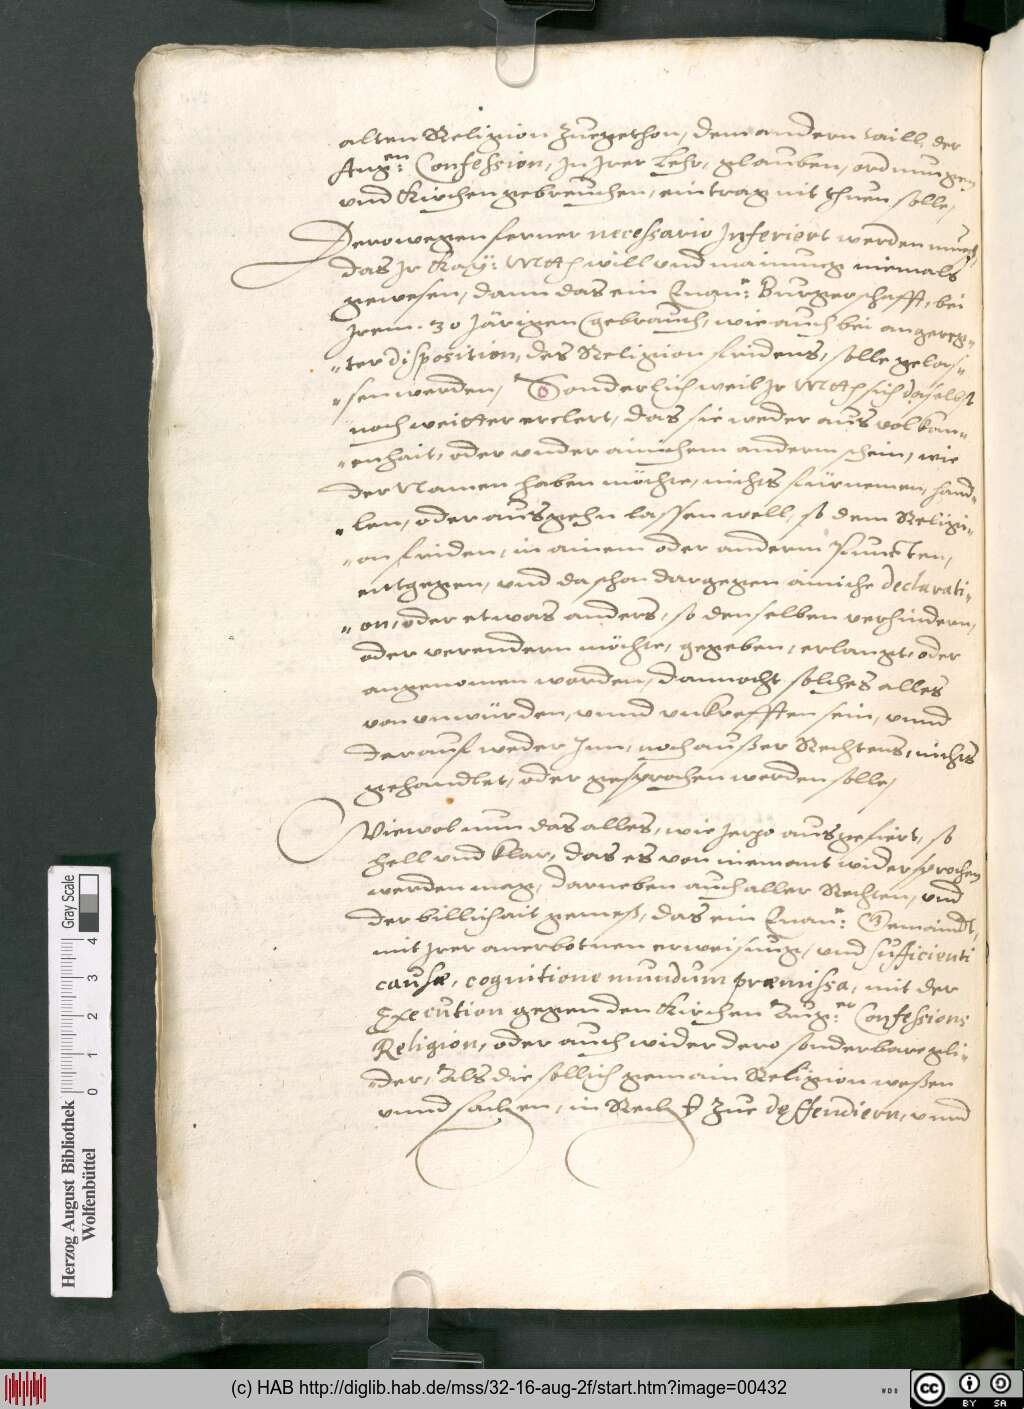 alten Religion Zuegethon, dem andern taill, der
Augen: Confession, In Irer Lehr, glauben, ordnungen
und Kirchengebreuchen, eintrag nit thuen solle,
Derowegen ferner necessario Inferiert werden mueß,
das Ir Kay: Mtt will und mainung niemals
gewesen, dann das ein Euan: Burgerschafft, bei
Irem 30 Järigen Gebrauch, wie auch bei angereg-
ter disposition, des Religion fridens, solle gelas-
sen werden, Sonderlich weil Ir Mtt sich daselbst
noch weitter erclert, das sie weder aus volkom-
enhait, oder under ainichem anderm schein, wie
der Namen haben möchte, nichts fürnemen, hand-
len, oder ausgehn lassen well, so dem Religi-
on friden, in ainem oder anderm Puncten,
entgegen, und da schon dargegen ainiche declarati-
on, oder etwas anders, so denselben verhindern,
oder verendern möchte, gegeben, erlangt, oder
angenomen worden, dannocht solches alles
von unwürden, unnd unkrefften sein, unnd
darauf weder Inn, noch außer Rechtens, nichts
gehandlet, oder gesprochen werden solle,
Wiewol nun das alles, wie Jezo ausgefiert, so
hell und klar, das es von niemant widersprochen
werden mag, darneben auch aller Rechten, und
der billichait gemeß, das ein Euan: Gemaindt,
mit Irer anerbotnen erweisung, und sufficienti
causæ, cognitione mundum præmissa, mit der
Execution gegen den Kirchen Auger: Confessions
Religion, oder auch wider dero sonderbare gli-
der, Als die sollich gemain Religion weßen
unnd sachen, in Recht Zue deffendiern, unnd
Herzog August Bibliothek
Wolfenbüttel
Gray Scale
0 1 2 3 4
(c) HAB http://diglib.hab.de/mss/32-16-aug-2f/start.htm?image=00432
WDB
CC BY SA